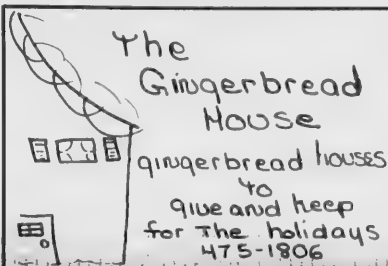 The
Gingerbread
House
gingerbread houses
to
give and keep
for the holidays
475-1806